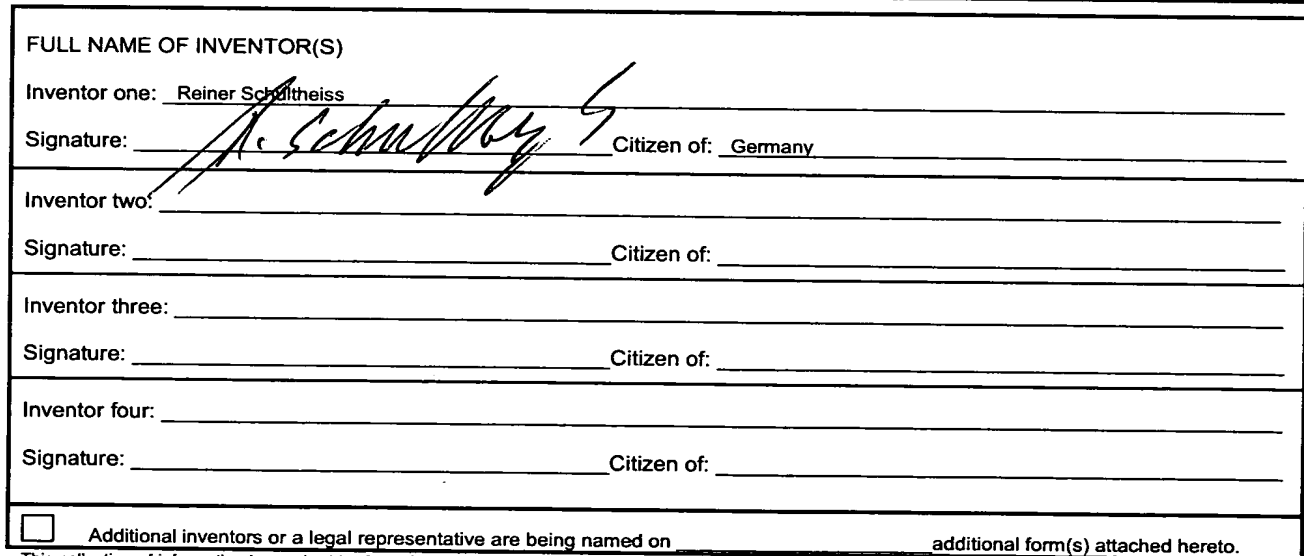 FULL NAME OF INVENTOR(S)
Inventor one: Reiner Schultheiss
Signature: Citizen of: Germany
Inventor two:
Signature: Citizen of:
Inventor three:
Signature: Citizen of:
Inventor four:
Signature: Citizen of:
Additional inventors or a legal representative are being named on additional form(s) attached hereto.